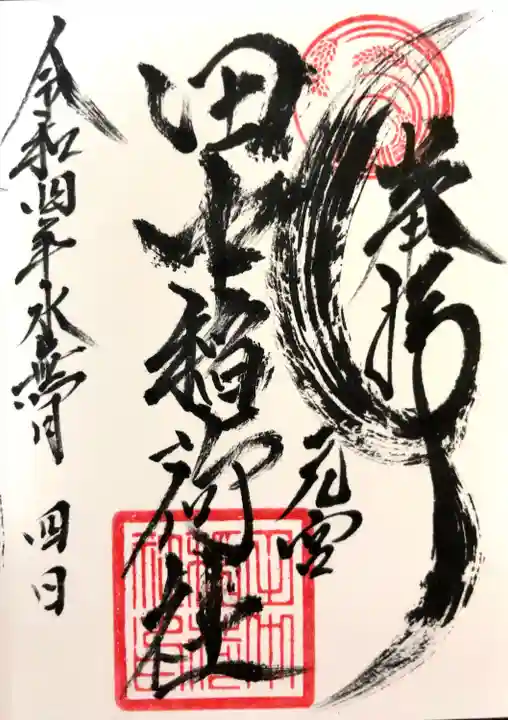 奉拝
元宮
田中稲荷社
令和四年水無月 四日